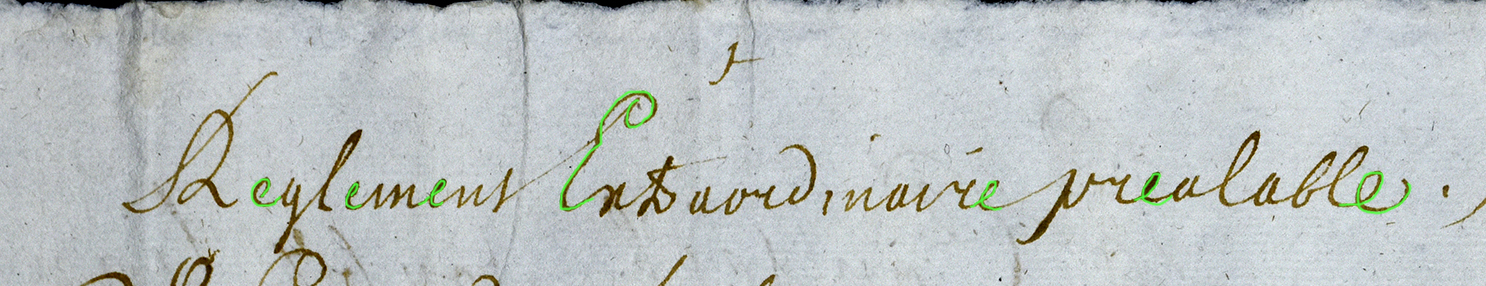 Reglement Extraordinaire prealable.